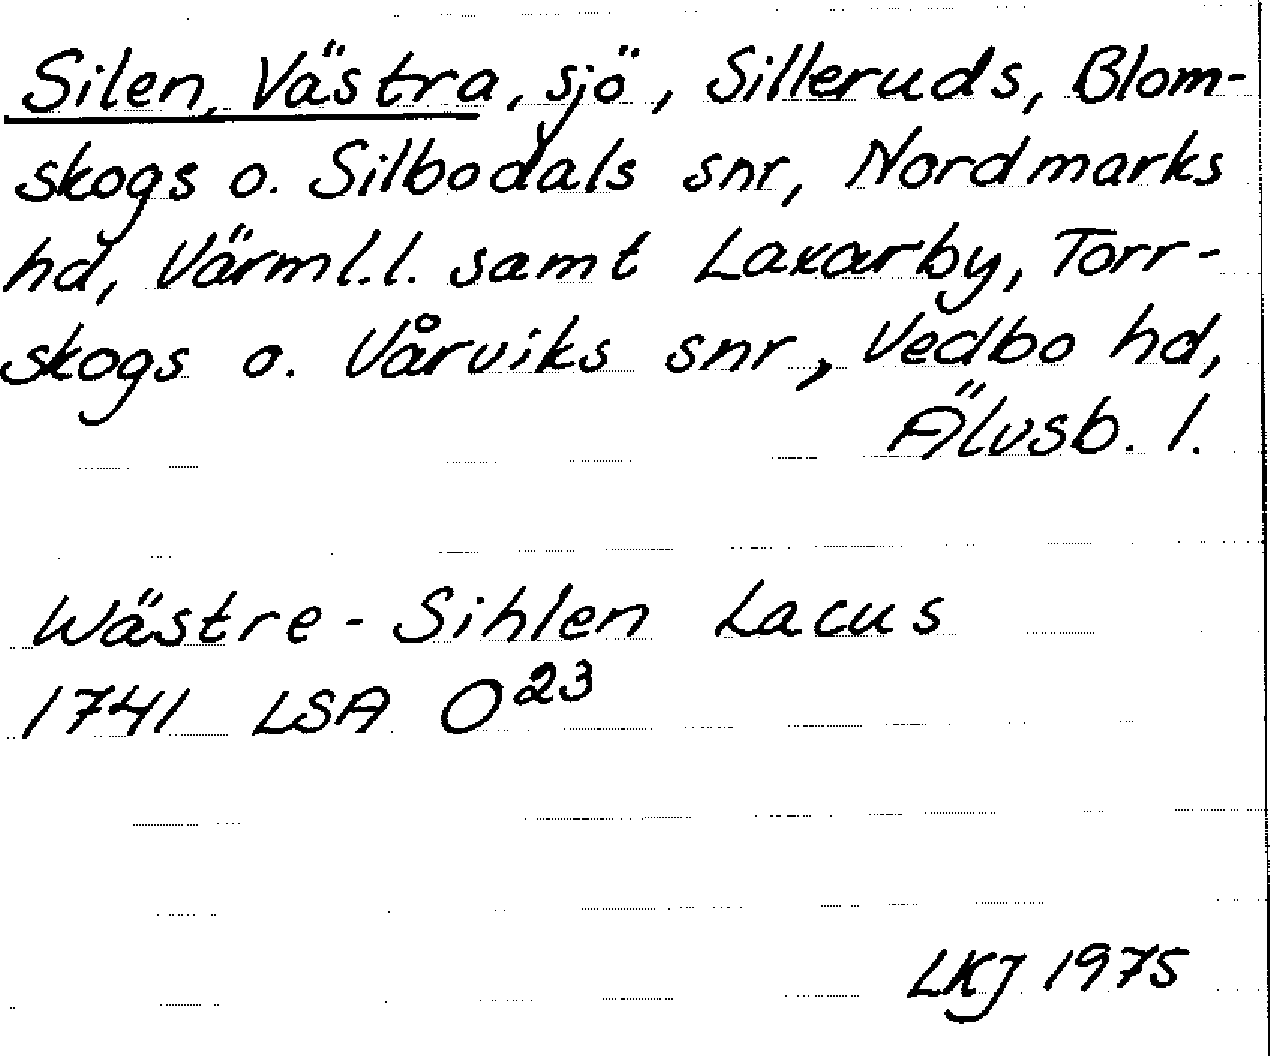 Silen, Västra, sjö, Silleruds, Blom-
skogs o. Silbodals snr, Nordmarks
hd, Värml.l. samt Laxarby, Torr-
skogs o. Vårviks snr, Vedbo hd,
Älvsb. l.
Wästre-Sihlen Lacus
1741 LSA O²³
LKJ 1975